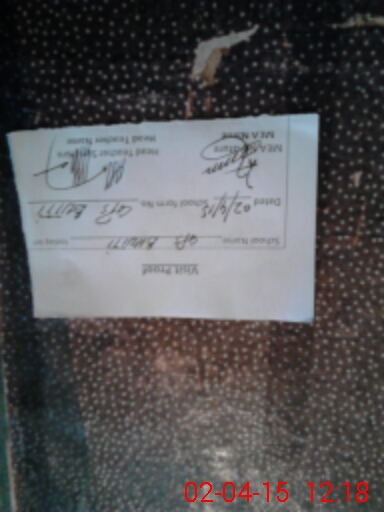 Visit Proof
School Name GPS today on
Dated 02/4/15 School form No. GPS
MEA Signature Head Teacher Signature
MEA Name Head Teacher Name
02-04-15 12:18